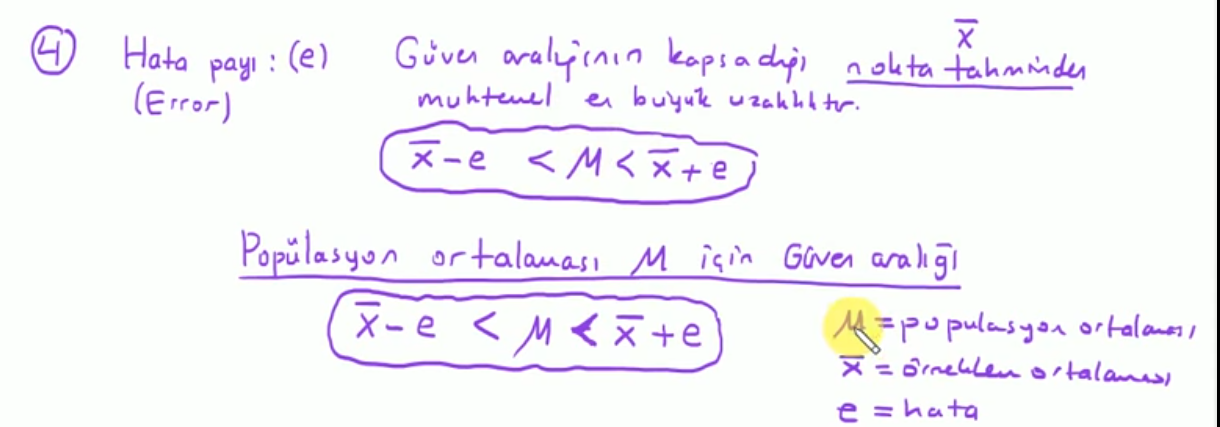 ④ Hata payı : (e) Güven aralığının kapsadığı nokta tahminden x̄
(Error) muhtemel en büyük uzaklıktır.
x̄ - e < M < x̄ + e
Popülasyon ortalaması M için Güven aralığı
x̄ - e < M < x̄ + e
M = populasyon ortalaması
x̄ = örneklem ortalaması
e = hata